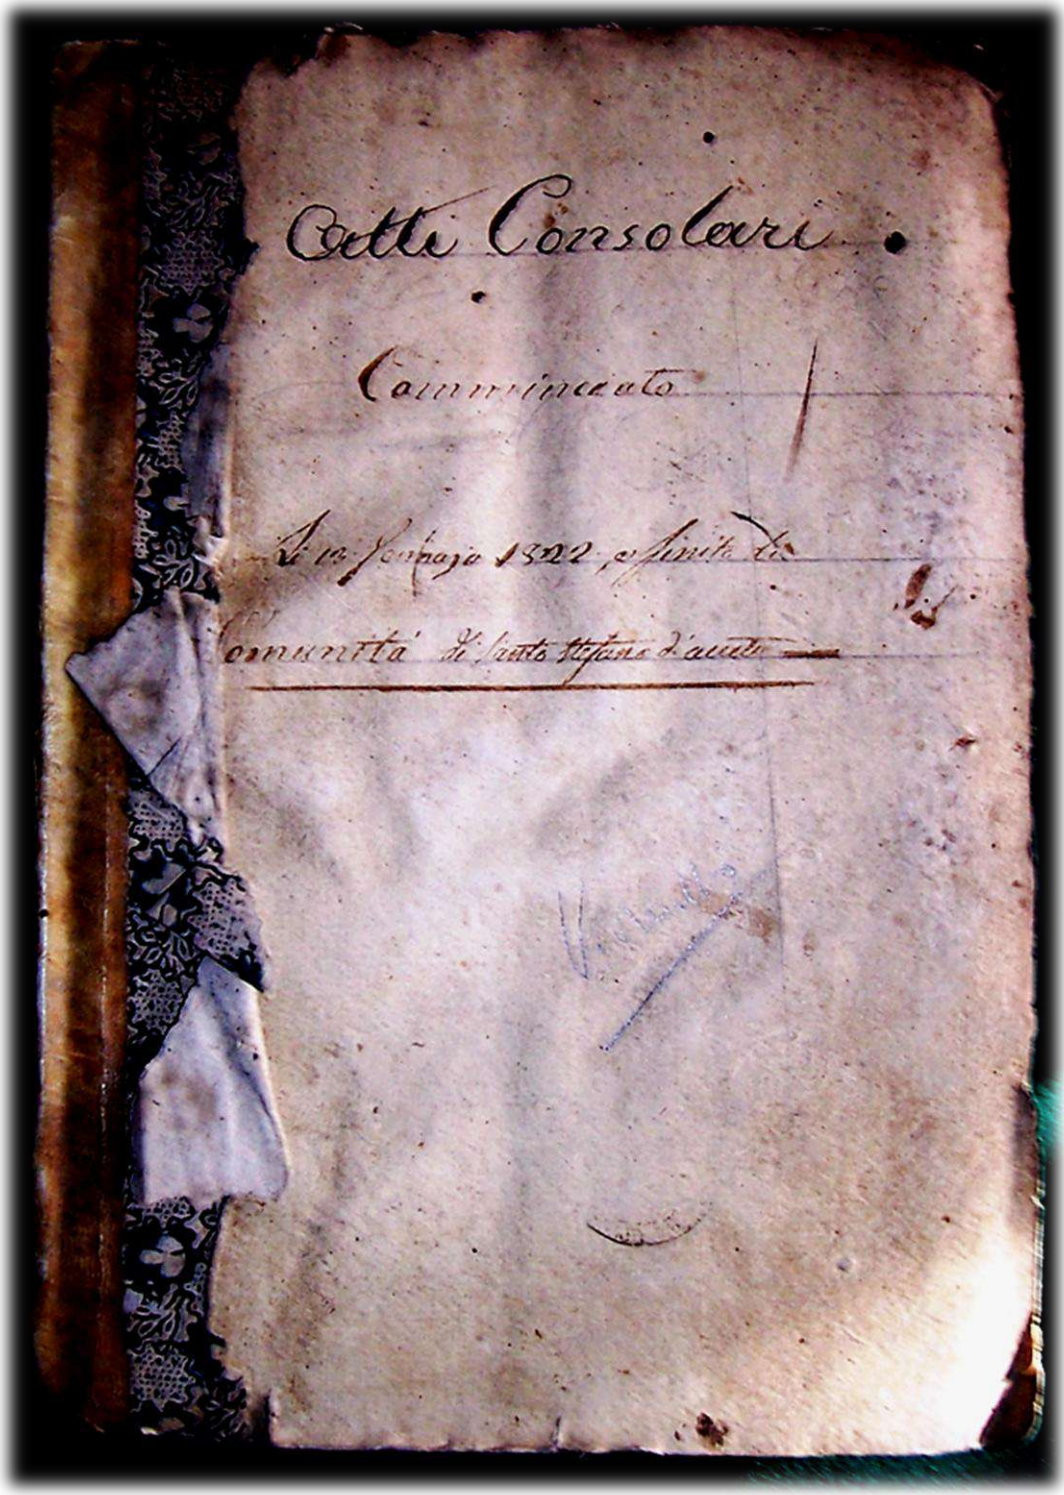 Atti Consolari.
Cominciato
Li 13 Gennajo 1822, e finito li
Comunità di Santo Stefano d'aveto